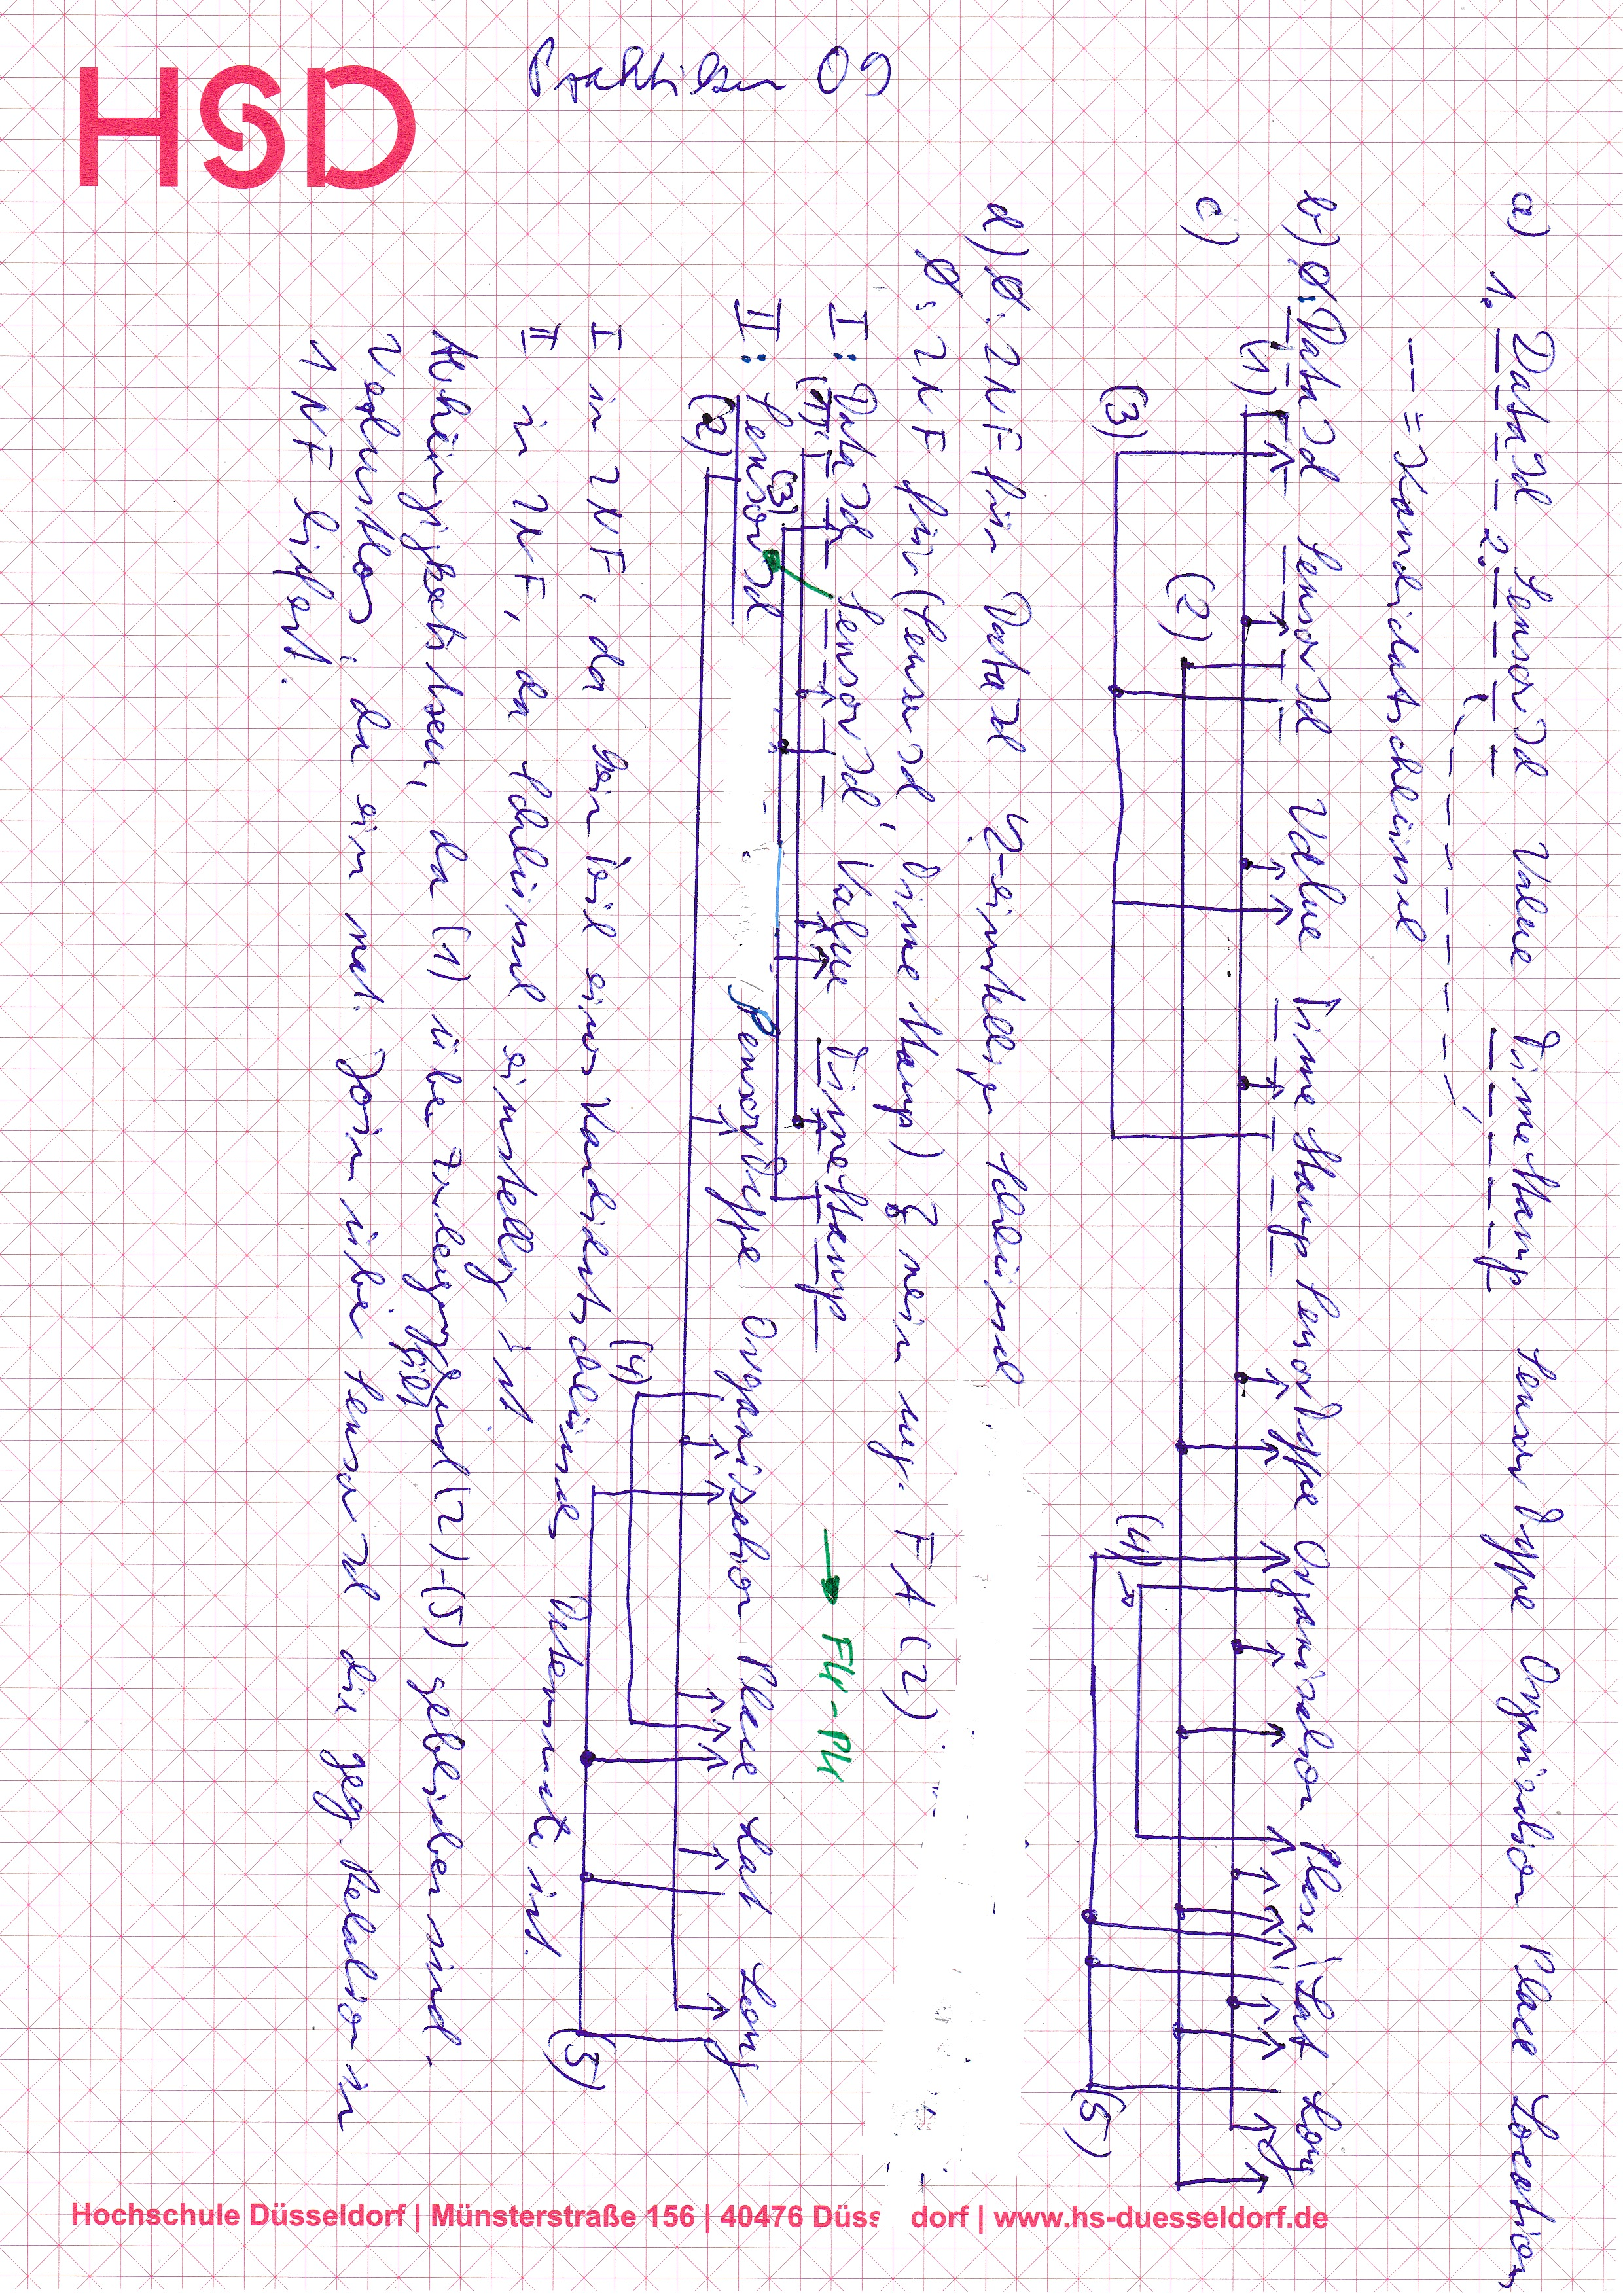 HSD
Praktikum 09
a) 1. DataId 2. SensorId Value TimeStamp SensorType Organisation Place Location
-- = Kandidatschlüssel
b) Ø: DataId SensorId Value TimeStamp SensorType Organisation Place Lat Long
(1)
c)
(2)
(3)
(4)
(5)
d) Ø: 2NF für DataId 1-einstellige Schlüssel
Ø: 2NF für (SensorId, TimeStamp)? nein wg. FA (2)
I: DataId SensorId Value TimeStamp → FK-PK
(1) (3)
II: SensorId SensorType Organisation Place Lat Long
(2) (4) (5)
I in 2NF, da kein Teil eines Kandidatschlüssels Determinate ist.
II in 2NF, da Schlüssel einstellig ist
Abhängigkeitstreu, da (1) über Zerlegung gilt und (2)-(5) geblieben sind.
Verlustlos, da ein nat. Join über SensorId die geg. Relation in
1NF liefert.
Hochschule Düsseldorf | Münsterstraße 156 | 40476 Düss dorf | www.hs-duesseldorf.de